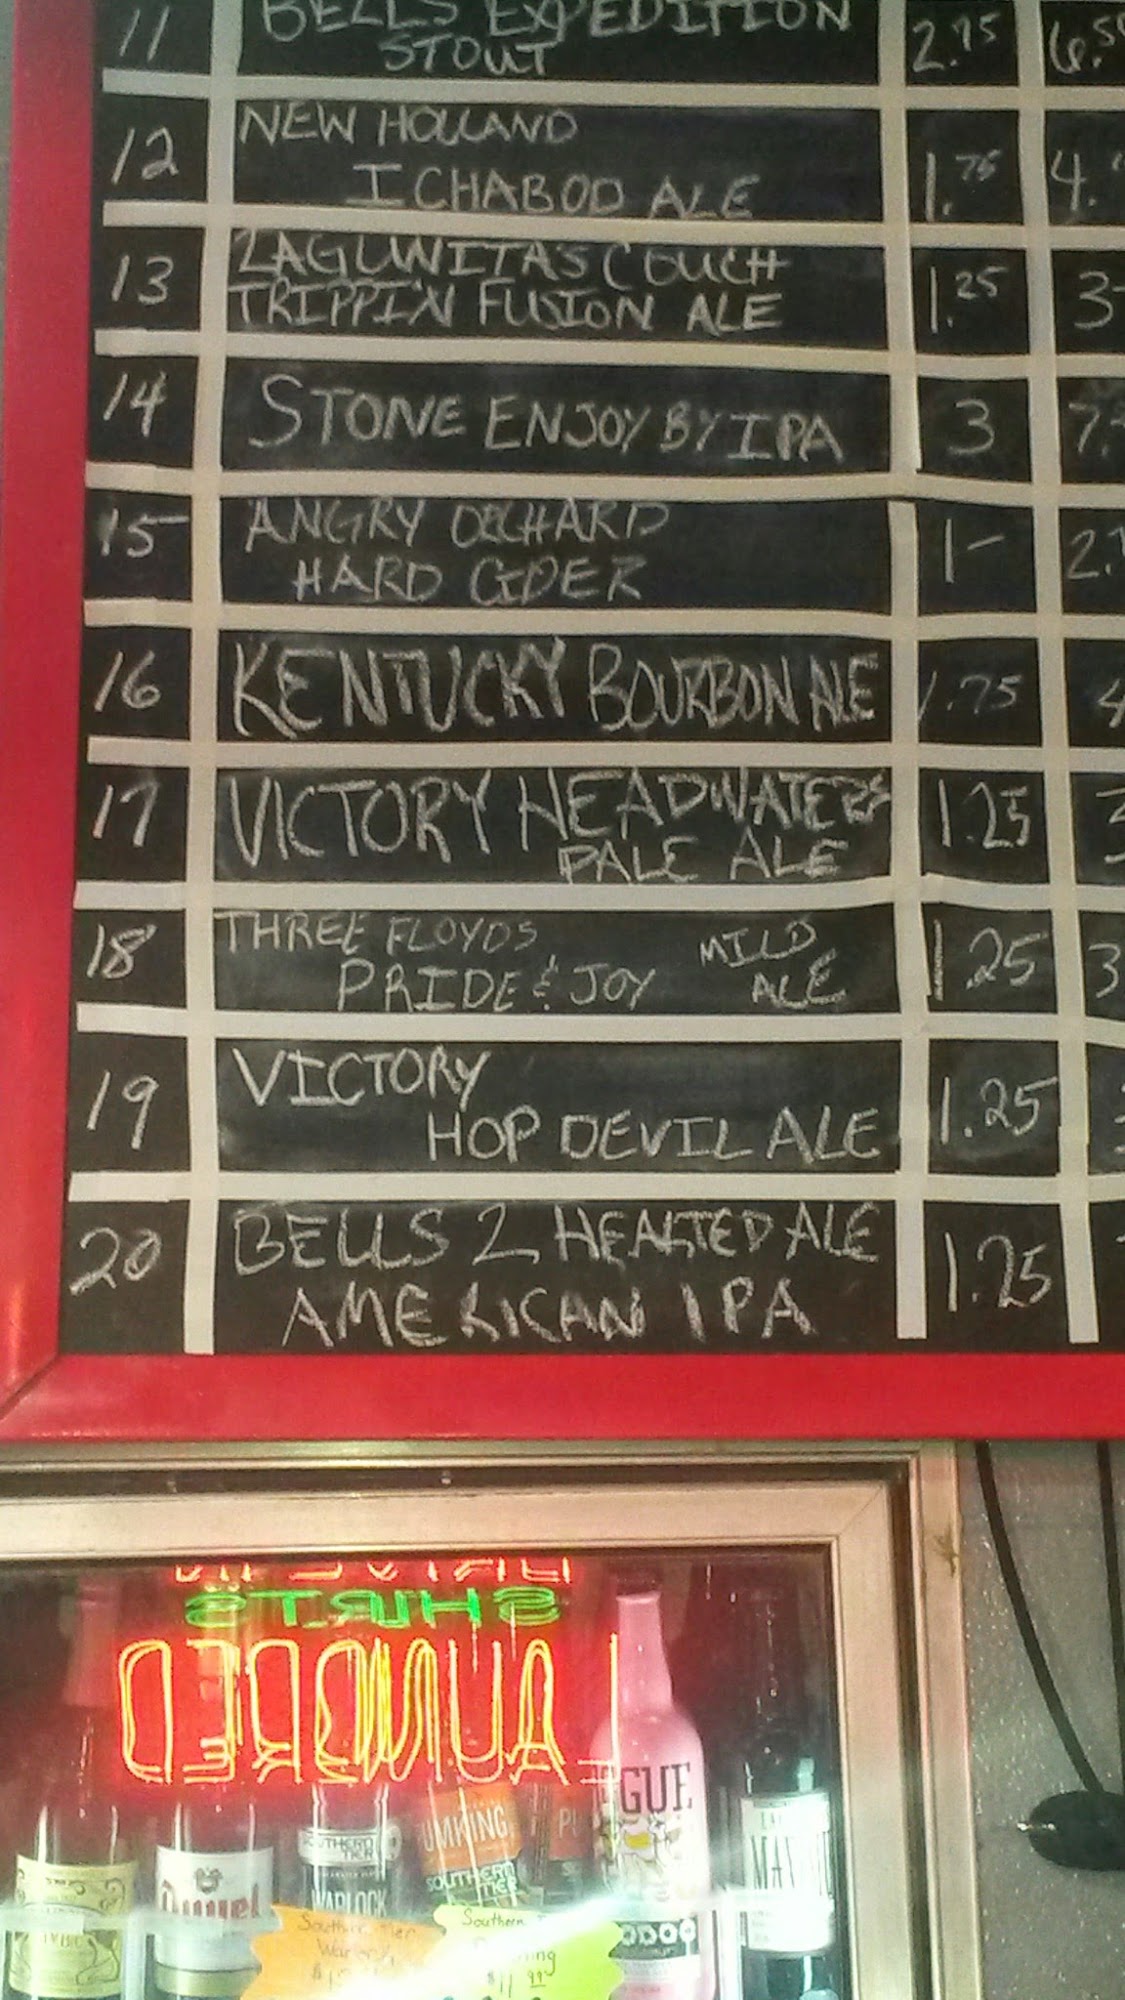 11 BELLS EXPEDITION 2.75 6.50
STOUT
12 NEW HOLLAND 1.75 4.
ICHABOD ALE
13 LAGUNITAS COUCH 1.25 3-
TRIPPIN FUSION ALE
14 STONE ENJOY BY IPA 3 7.
15 ANGRY ORCHARD 1- 2.
HARD CIDER
16 KENTUCKY BOURBON ALE 1.75 4
17 VICTORY HEADWATERS 1.25
PALE ALE
18 THREE FLOYDS MILD 1.25 3
PRIDE & JOY ALE
19 VICTORY 1.25
HOP DEVIL ALE
20 BELLS 2 HEARTED ALE 1.25
AMERICAN IPA
SHIRTS
Duvel
SOUTHERN
TIER
WARLOCK
UMKING
SOUTHERN
TIER
GUE
DOO
Southern Tier
Warlock
Southern
$11.99